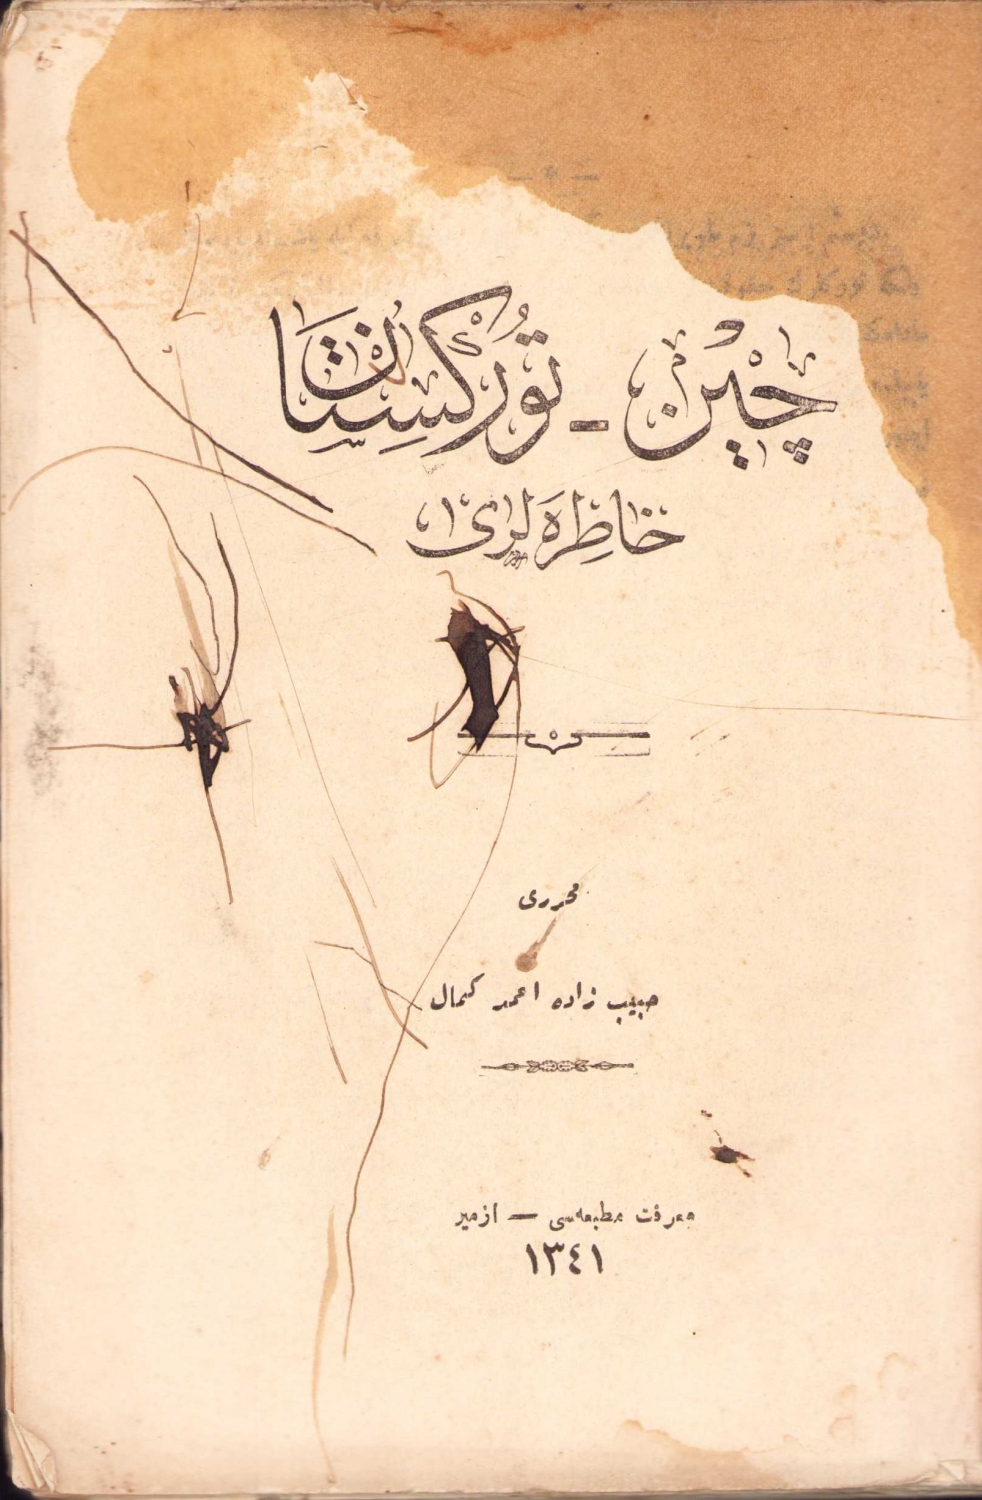 چين - توركستان
خاطره لرى
محررى
حبيب زاده احمد كمال
معرفت مطبعه سى — ازمير
١٣٤١